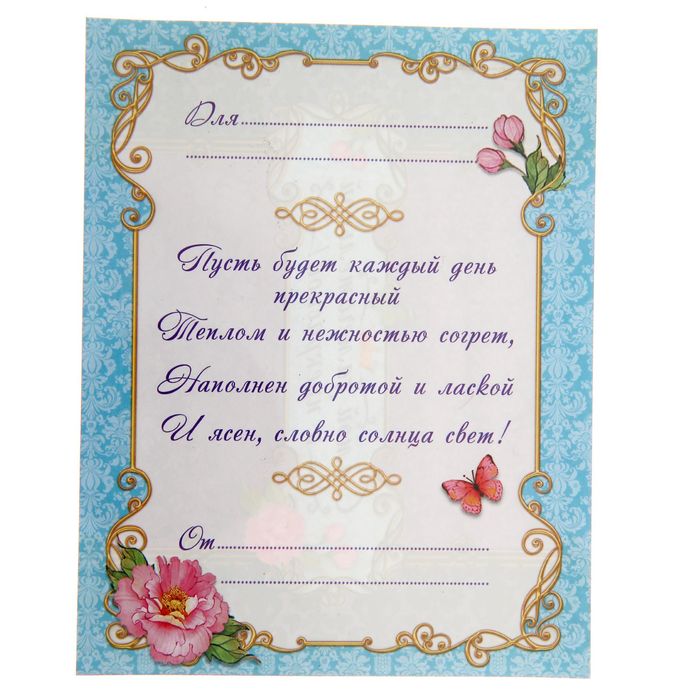 Для
Пусть будет каждый день
прекрасный
Теплом и нежностью согрет,
Наполнен добротой и лаской
И ясен, словно солнца свет!
От